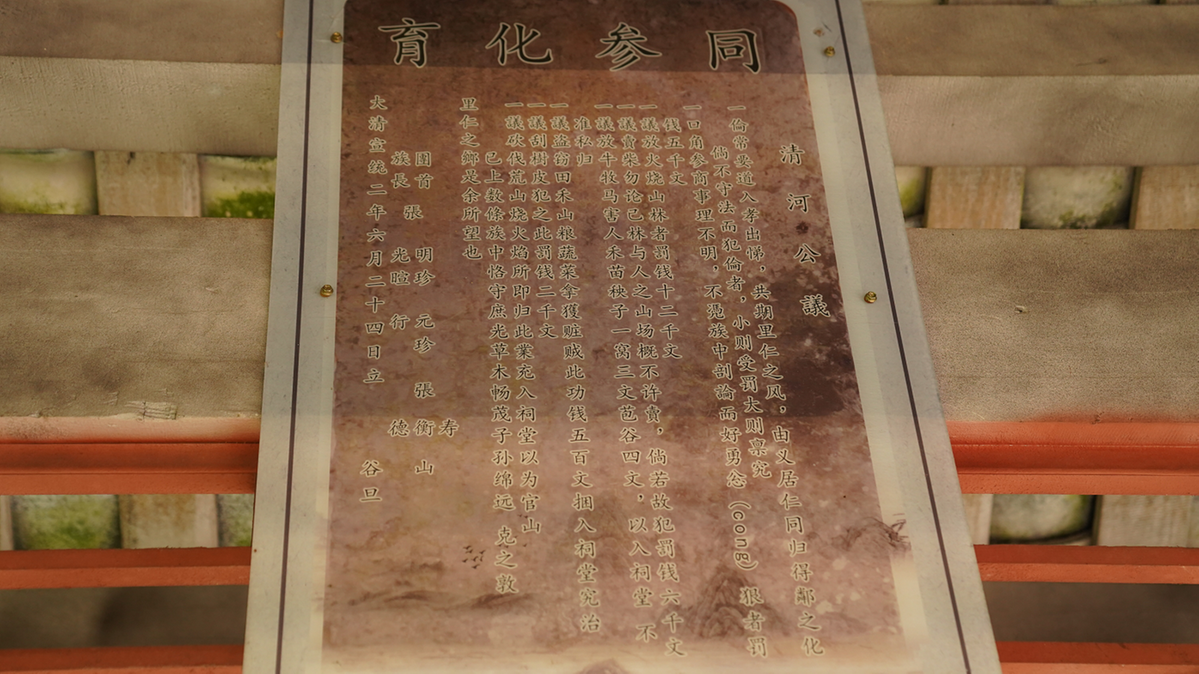 同参化育
清河公議
一倫常要道入孝出悌，共期里仁之风，由义居仁同归得鄰之化
倘不守法而犯倫者，小则受罰大则禀究
一口角参商事理不明，不凭族中剖論而好勇忩（cong）狠者罰
钱五千文
一議放火烧山林者罰钱十二千文
一議賣柴勿论己林与人之山场概不许賣，倘若故犯罰钱六千文
一議放牛牧马害人禾苗秧子一窝三文苞谷四文，以入祠堂不
准私归
一議盗窃田禾山粮蔬菜拿獲赃贼此功钱五百文捆入祠堂究治
一議刮樹皮犯之此罰钱二千文
一議砍伐荒山烧火焰所即归此業充入祠堂以为官山
已上数條族中恪守庶光草木畅茂子孙绵远 克之敦
里仁之鄉是余所望也
團首 張 明珍 元珍 張 衡山 寿
族長 光暄 行 德
大清宣统二年六月二十四日立 谷旦